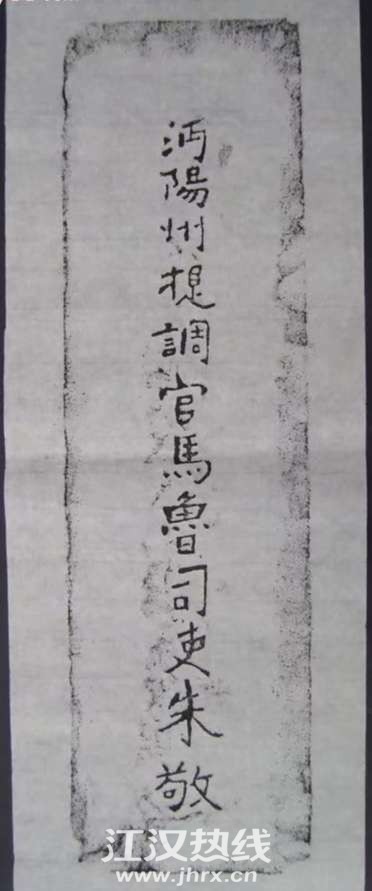 沔陽州提調官馬魯司吏朱敬
江汉热线
www.jhrx.cn